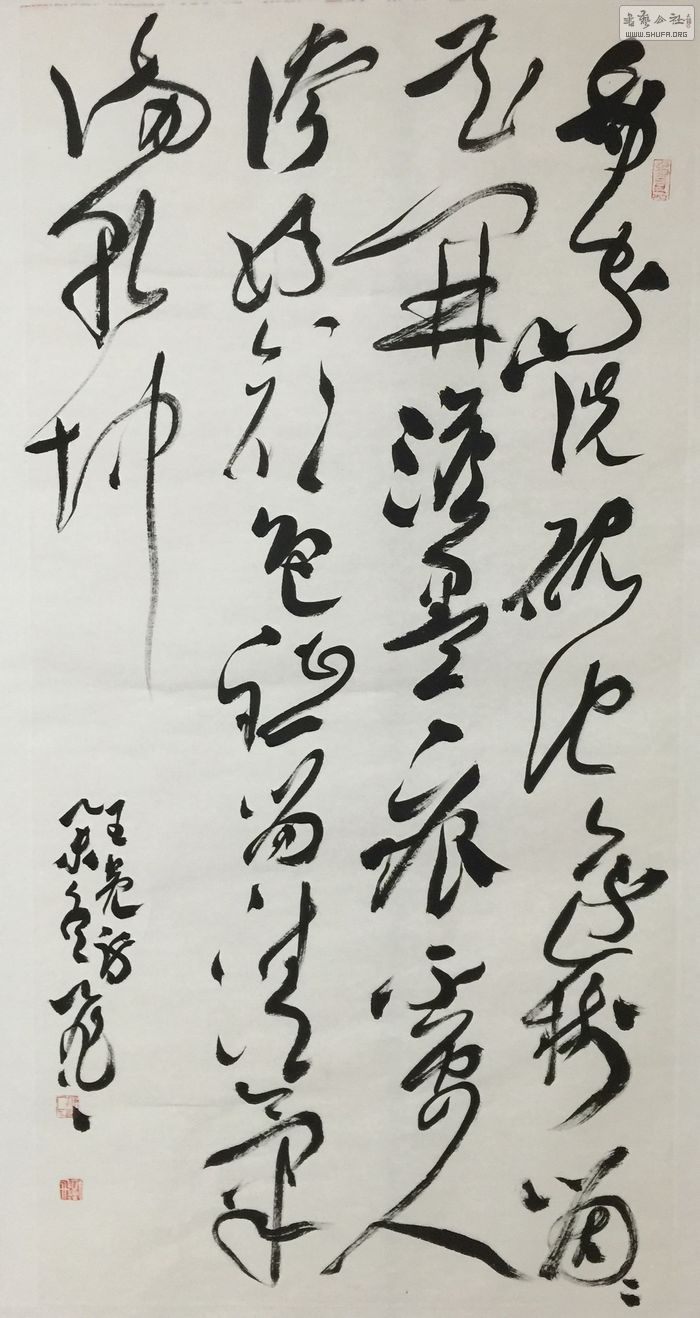 書藝公社
WWW.SHUFA.ORG
我家洗硯池邊樹個々
花開淡墨痕不要人
誇好顏色祗留清氣
滿乾坤
王冕詩